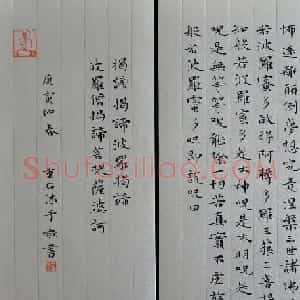 怖遠離顛倒夢想究竟涅槃三世諸佛
若波羅蜜多故得阿耨多羅三藐三菩提
知般若波羅蜜多是大神呪是大明呪是
呪是無等等呪能除一切苦真實不虛故
般若波羅蜜多呪即說呪曰
揭諦揭諦波羅揭諦
波羅僧揭諦菩提薩婆訶
庚寅
書
Shufaziliao.COM